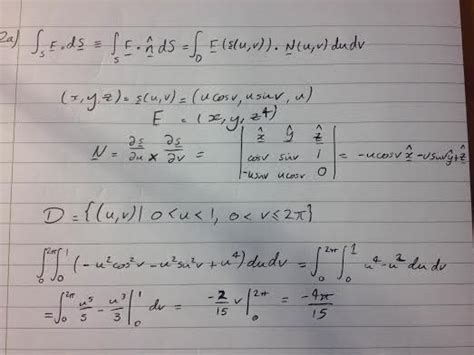 2a) ∫_S F·dS ≡ ∫_S F·n̂ dS = ∫_D F(s(u,v))·N(u,v)dudv
(x,y,z) = s(u,v) = (ucosv, usinv, u)
F = (x, y, z⁴)
N = ∂s/∂u × ∂s/∂v = | x̂ ŷ ẑ |
| cosv sinv 1 | = -ucosv x̂ - usinv ŷ + ẑ
| -usinv ucosv 0 |
D = {(u,v) | 0<u<1, 0<v≤2π}
∫₀^2π ∫₀^1 (-u²cos²v - u²sin²v + u⁴) dudv = ∫₀^2π ∫₀^1 u⁴-u² dudv
= ∫₀^2π u⁵/5 - u³/3 |₀^1 dv = -2/15 v |₀^2π = -4π/15